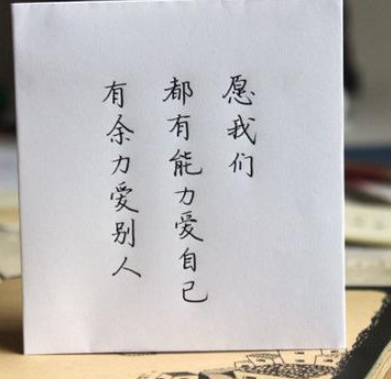 愿我们
都有能力爱自己
有余力爱别人